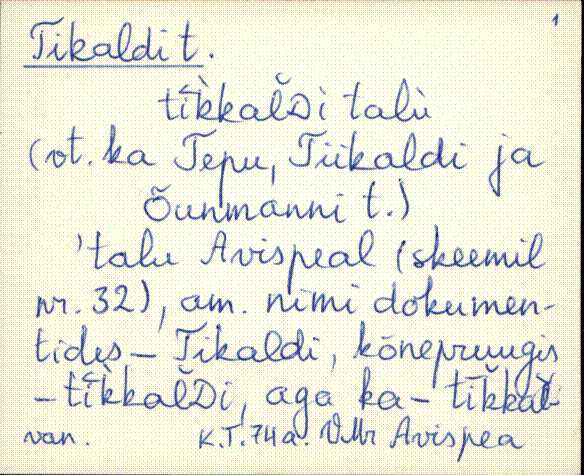 1
Tikaldi t.
tĭ̀kkalD̆i talù
(vt. ka Tepu, Tiikaldi ja
Õunmanni t.)
'talu Avispeal (skeemil
nr. 32), am. nimi dokumen-
tides – Tikaldi, kõnepruugis
– tĭ̀kkalD̆i, aga ka –
van. K.T. 74 a. VMr Avispea